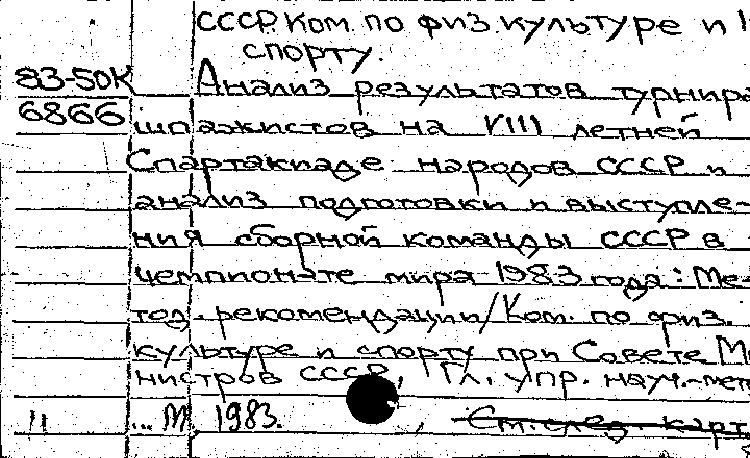 СССР. Ком. по физ. культуре и
спорту.
83-50К
Анализ результатов турнира
6866
шпажистов на VIII летней
Спартакиаде народов СССР и
анализ подготовки и выступле-
ния сборной команды СССР в
чемпионате мира 1983 года: Ме-
тод. рекомендации/Ком. по физ.
культуре и спорту при Совете Ми
нистров СССР, Гл. упр. науч.-мет
11 ... М 1983. См. след. карт